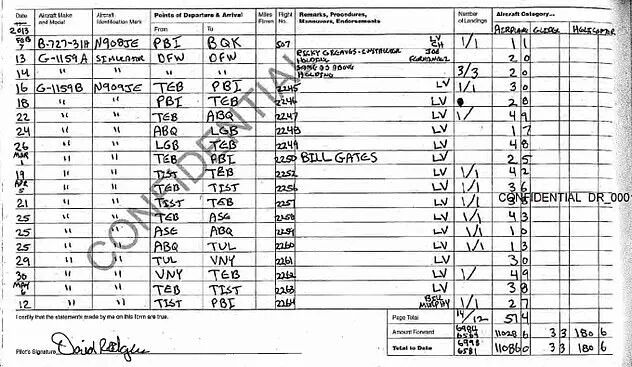 Date Aircraft Make and Model Aircraft Identification Mark Points of Departure & Arrival Miles Flown Flight No. Remarks, Procedures, Maneuvers, Endorsements Number of Landings Aircraft Category...
2013 From To AIRPLANE GLIDER HELICOPTER
FEB 7 B-727-31H N908JE PBI BQK 507 LV CH 1/1 1 1
13 G-1159A SIMULATOR DFW DFW RICKY GREAVES - JOE HOLDING 2 0
14 " " " " SAME AS ABOVE HOLDING 3/3 2 0
16 G-1159B N909JE TEB PBI 2245 LV 1/1 3 0
18 " " PBI TEB 2246 LV 2 8
22 " " TEB ABQ 2247 LV 1/ 4 9
24 " " ABQ LGB 2248 LV 1 7
26 " " LGB TEB 2249 LV 4 8
MAR 1 " " TEB PBI 2250 BILL GATES LV 2 5
19 " " TIST TEB 2252 LV 1/1 4 2
APR 5 " " TEB TIST 2256 LV 1/1 3 6
21 " " TIST TEB 2257 LV 1/1
25 " " TEB ASG 2258 LV 1/1 4 3
25 " " ASG ABQ 2259 LV 1/1 1 0
25 " " ABQ TUL 2260 LV 1/1 1 3
29 " " TUL VNY 2261 LV 3 0
30 " " VNY TEB 2262 LV 1/ 4 9
MAY 6 " " TEB TIST 2263 LV 3 8
12 " " TIST PBI 2264 BILL MURPHY 1/1 2 7
CONFIDENTIAL
CONFIDENTIAL DR_000
I certify that the statements made by me on this form are true. Page Total 14/12 57 4
Amount Forward 6984 6569 11028 6 3 3 180 6
Pilot's Signature David Rodgers Total to Date 6998 6581 11086 0 3 3 180 6